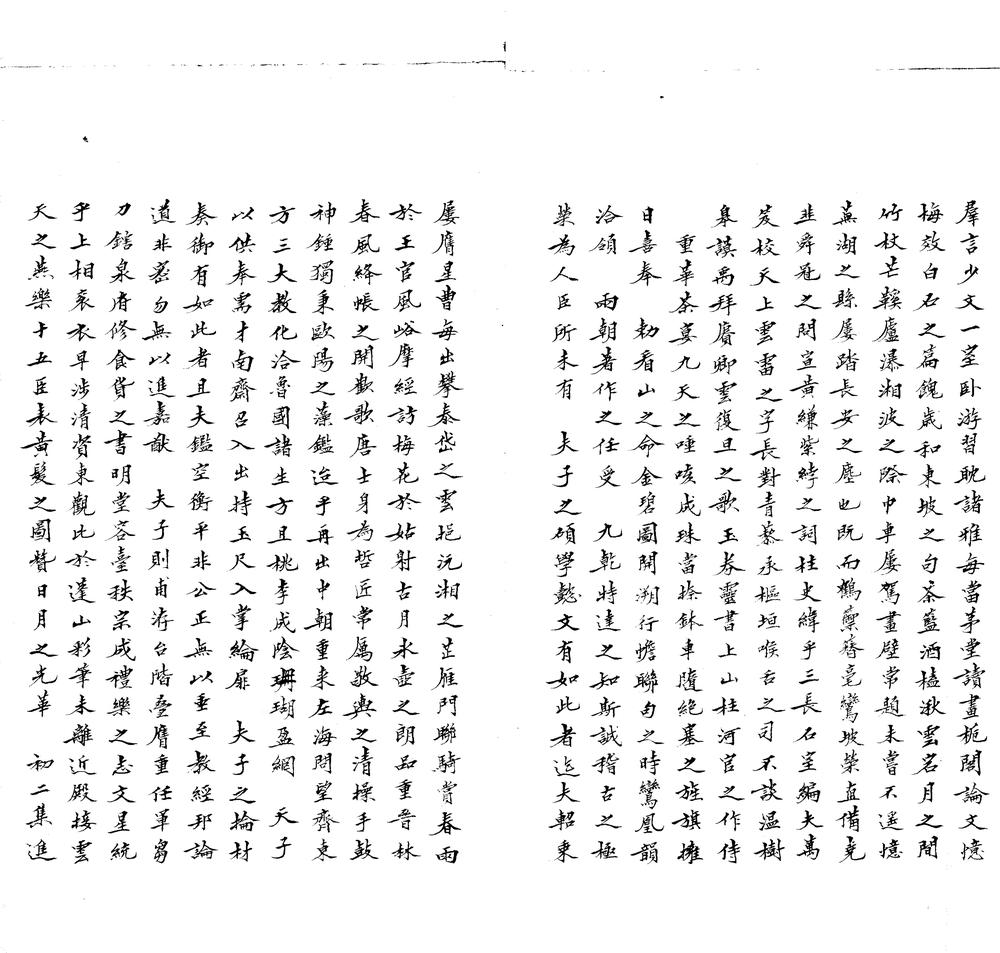 羣言少文一室臥游習耽諸雅每當茅堂讀畫梔閣論文憶
梅效白石之篇餽歲和東坡之句茶籃酒榼湫雲名月之間
竹杖芒鞵廬瀑湘波之際巾車屢駕畫壁常題未嘗不遥憶
蕪湖之縣屢踏長安之塵也既而鶴廩簪毫鸞坡榮直備堯
韭舜苑之問宣黄縑紫綍之詞柱史緯乎三長石室編夫萬
笈校天上雲雷之字長對青藜承樞垣喉舌之司不談温樹
皋謨禹拜賡卿雲復旦之歌玉券靈書上山柱河宫之作侍
重華茶宴九天之唾咳成珠當捺鉢車隨絶塞之旌旗擁
日喜奉　勅看山之命金碧圖開溯行幨聯句之時鸞凰韻
洽領　兩朝著作之任受　九乾特達之知斯誠稽古之極
榮為人臣所未有　夫子之碩學懿文有如此者迄夫軺車
屢膺星曹每出攀泰岱之雲挹沅湘之芷雁門聯騎嘗春雨
於王官風峪摩經訪梅花於姑射古月氷壺之朗品重晉林
春風絳帳之開歡歌唐士身為哲匠常屬敬輿之清操手鼓
神錘獨秉歐陽之藻鑑迨乎再出中朝重来左海問望齊東
方三大教化洽魯國諸生方且桃李成陰珊瑚盈網　天子
以供奉需才南齋召入出持玉尺入掌綸扉　夫子之掄材
奏御有如此者且夫鑑空衡平非公正無以垂至教經邦論
道非密勿無以進嘉猷　夫子則甫涖台階疊膺重任軍芻
刀錧泉府修食貨之書明堂容臺秩宗成禮樂之志文星統
乎上相衮衣早涉清資東觀比於蓬山彩筆未離近殿接雲
天之燕樂十五臣表黄髮之圖贊日月之光華　初二集進